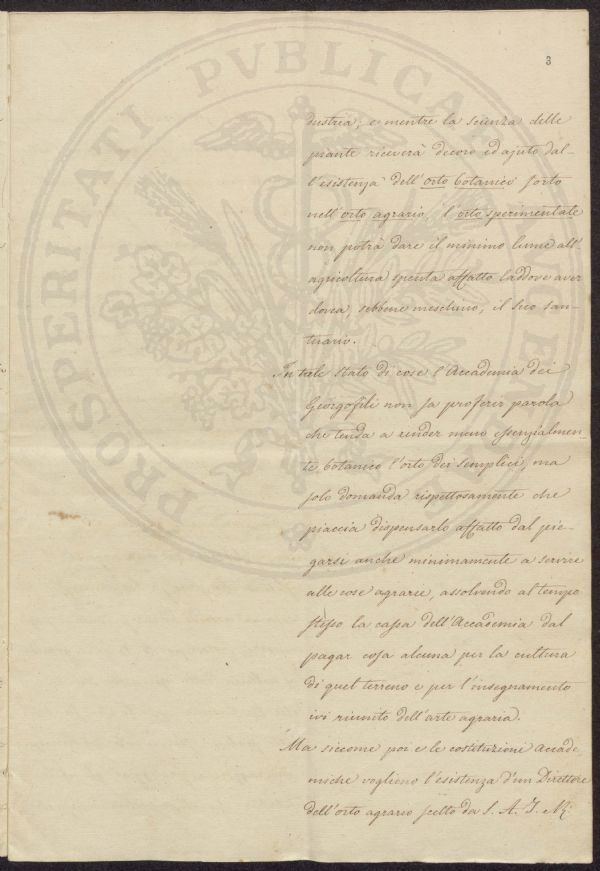 3
PROSPERITATI PVBLICAE
dustria; e mentre la scienza delle
piante riceverà decoro ed ajuto dal-
l'esistenza dell'orto botanico sorto
nell'orto agrario, l'orto sperimentale
non potrà dare il minimo lume all'
agricoltura spenta affatto laddove aver
dovea, sebbene meschino, il suo san-
tuario.
In tale stato di cose l'Accademia dei
Georgofili non sa proferir parola
che tenda a render meno essenzialmen-
te botanico l'orto dei semplici, ma
solo domanda rispettosamente che
piaccia dispensarlo affatto dal pie-
garsi anche minimamente a servire
alle cose agrarie, assolvendo al tempo
stesso la cassa dell'Accademia dal
pagar cosa alcuna per la cultura
di quel terreno e per l'insegnamento
ivi riunito dell'arte agraria.
Ma siccome poi e le costituzioni accade-
miche vogliono l'esistenza d'un Direttore
dell'orto agrario scelto da S. A. I. e R.